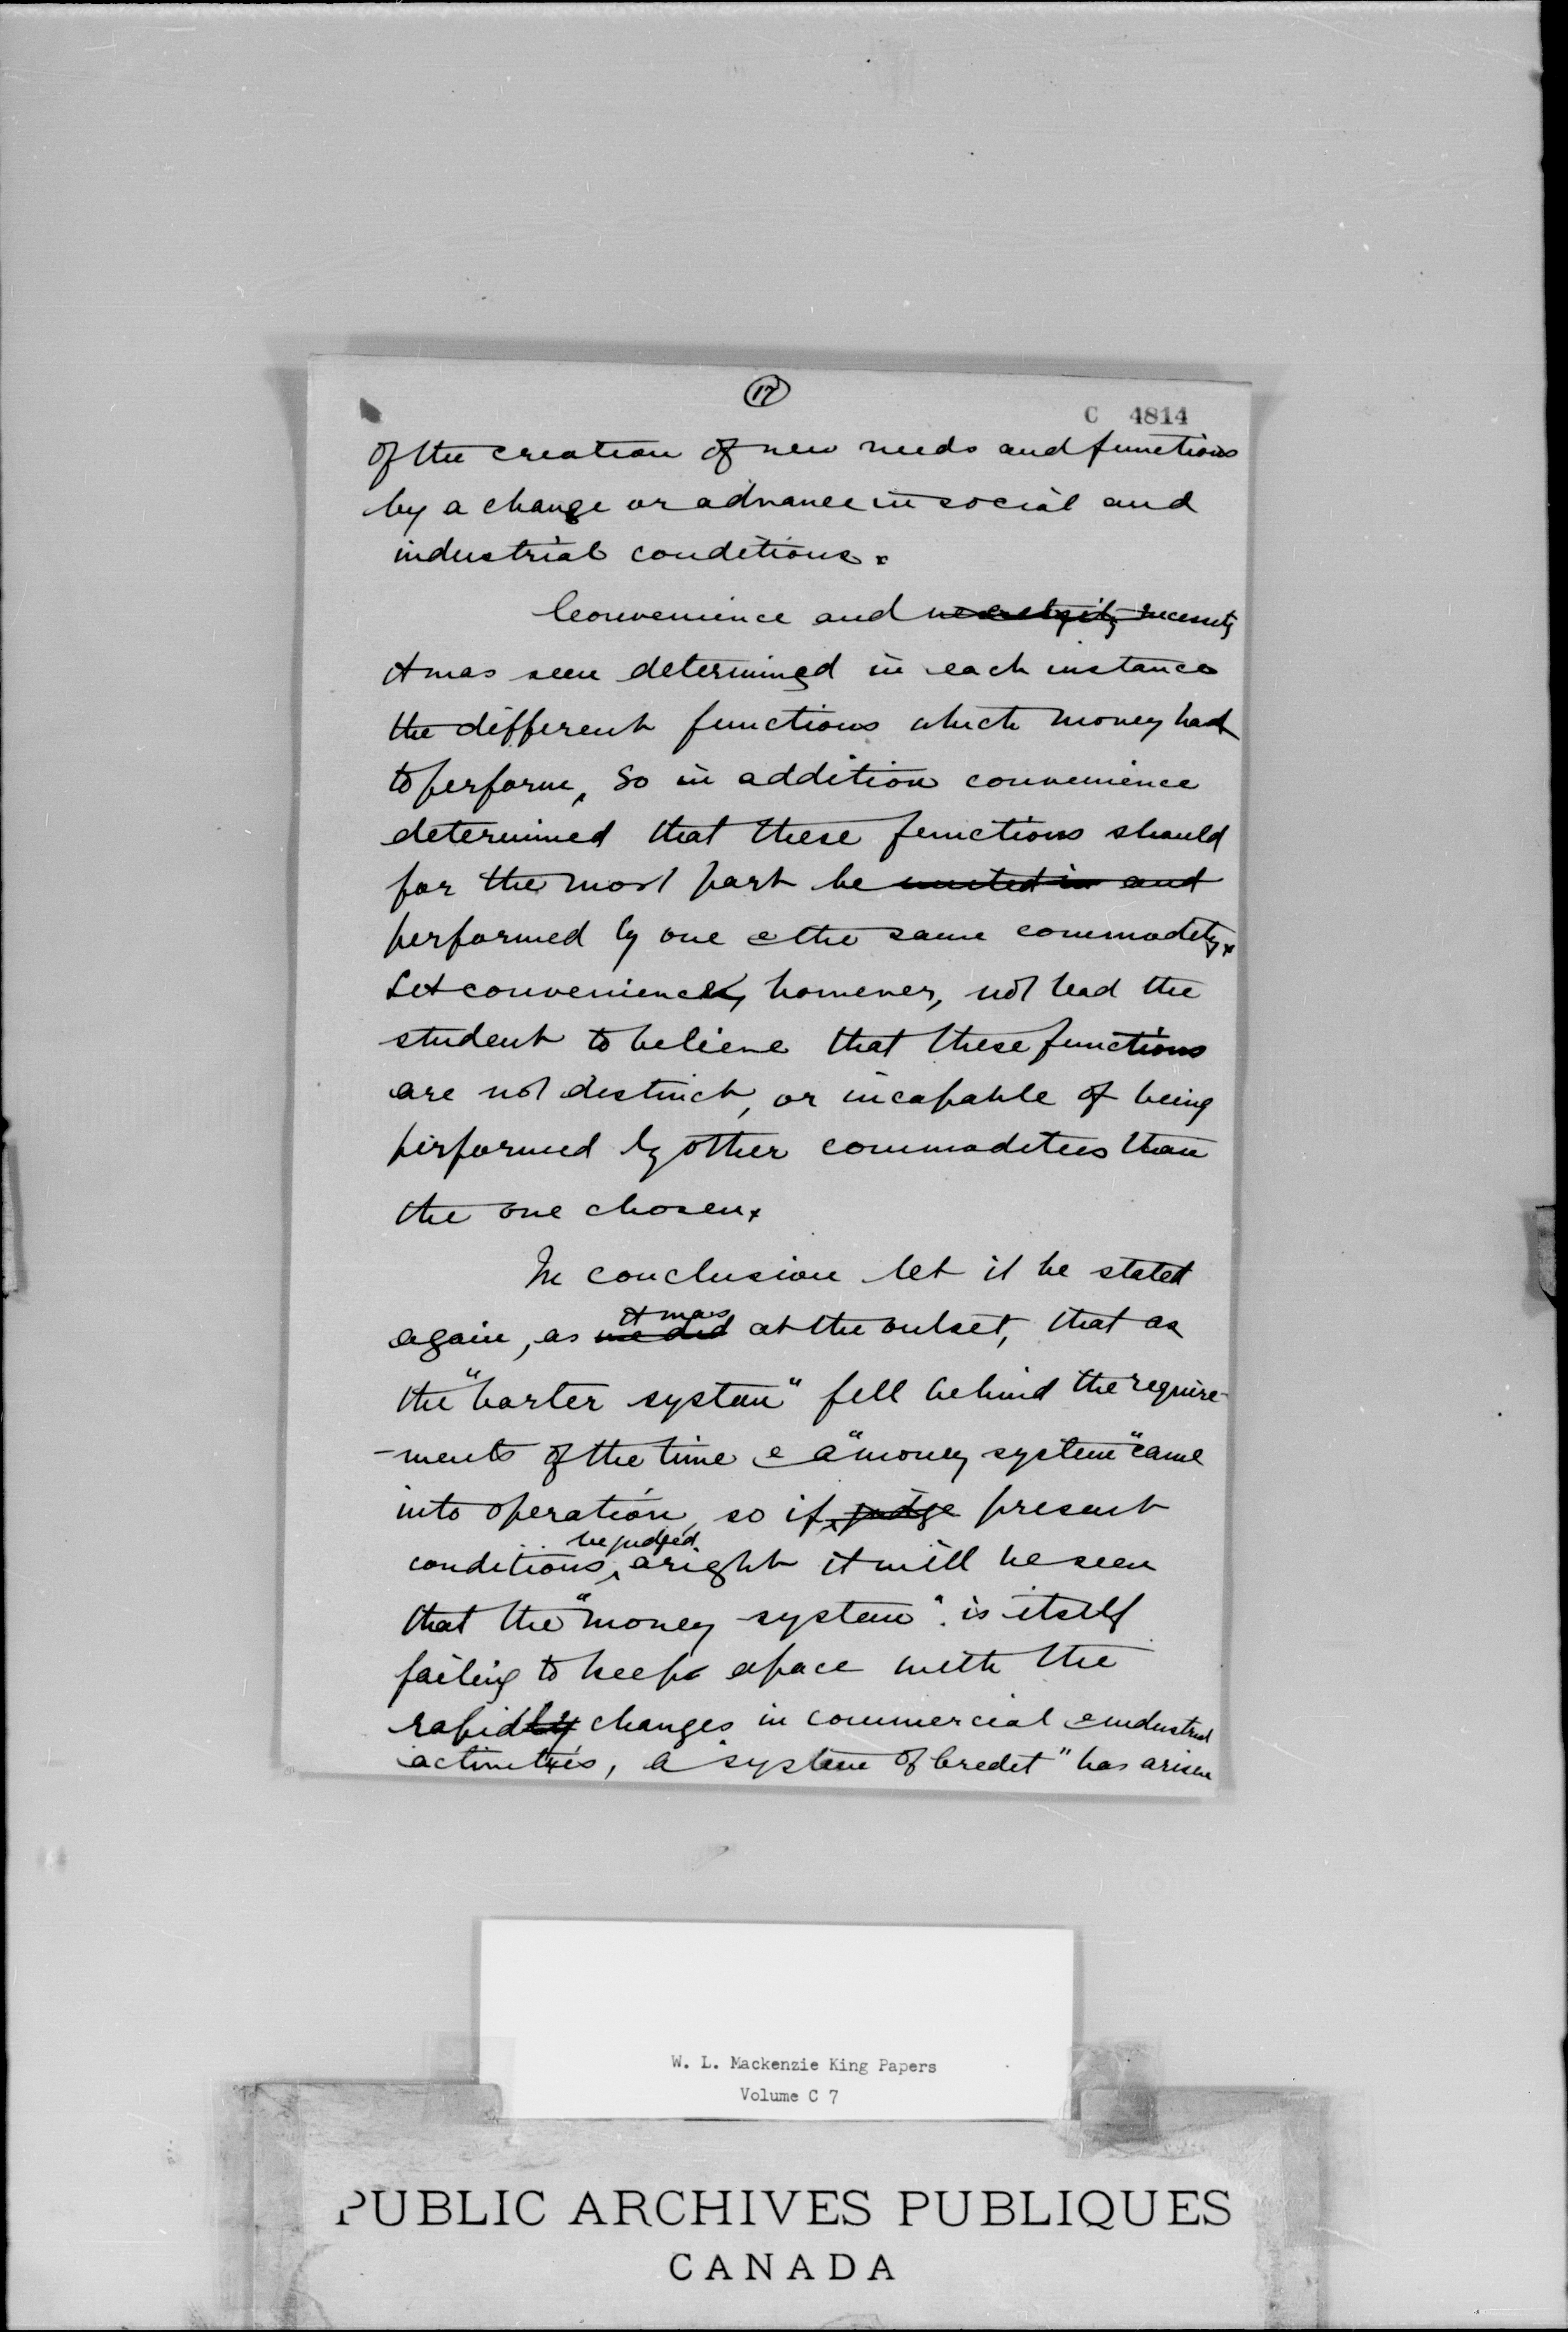 17
C 4814
of the creation of new needs and functions
by a change or advance in social and
industrial conditions.
Convenience and necessity
it was seen determined in each instance
the different functions which money had
to perform, So in addition convenience
determined that these functions should
for the most part be united in and
performed by one & the same commodity.
Let convenience, however, not lead the
student to believe that these functions
are not distinct, or incapable of being
performed by other commodities than
the one chosen.
In conclusion let it be stated
it was
again, as we did at the outset, that as
the "barter system" fell behind the require-
-ments of the time & a "money system" came
into operation, so if judge present
be judged
conditions, aright it will be seen
that the "money system". is itself
failing to keep apace with the
rapidly changes in commercial & industrial
activities, a "system of Credit" has arisen
W. L. Mackenzie King Papers
Volume C 7
PUBLIC ARCHIVES PUBLIQUES
CANADA